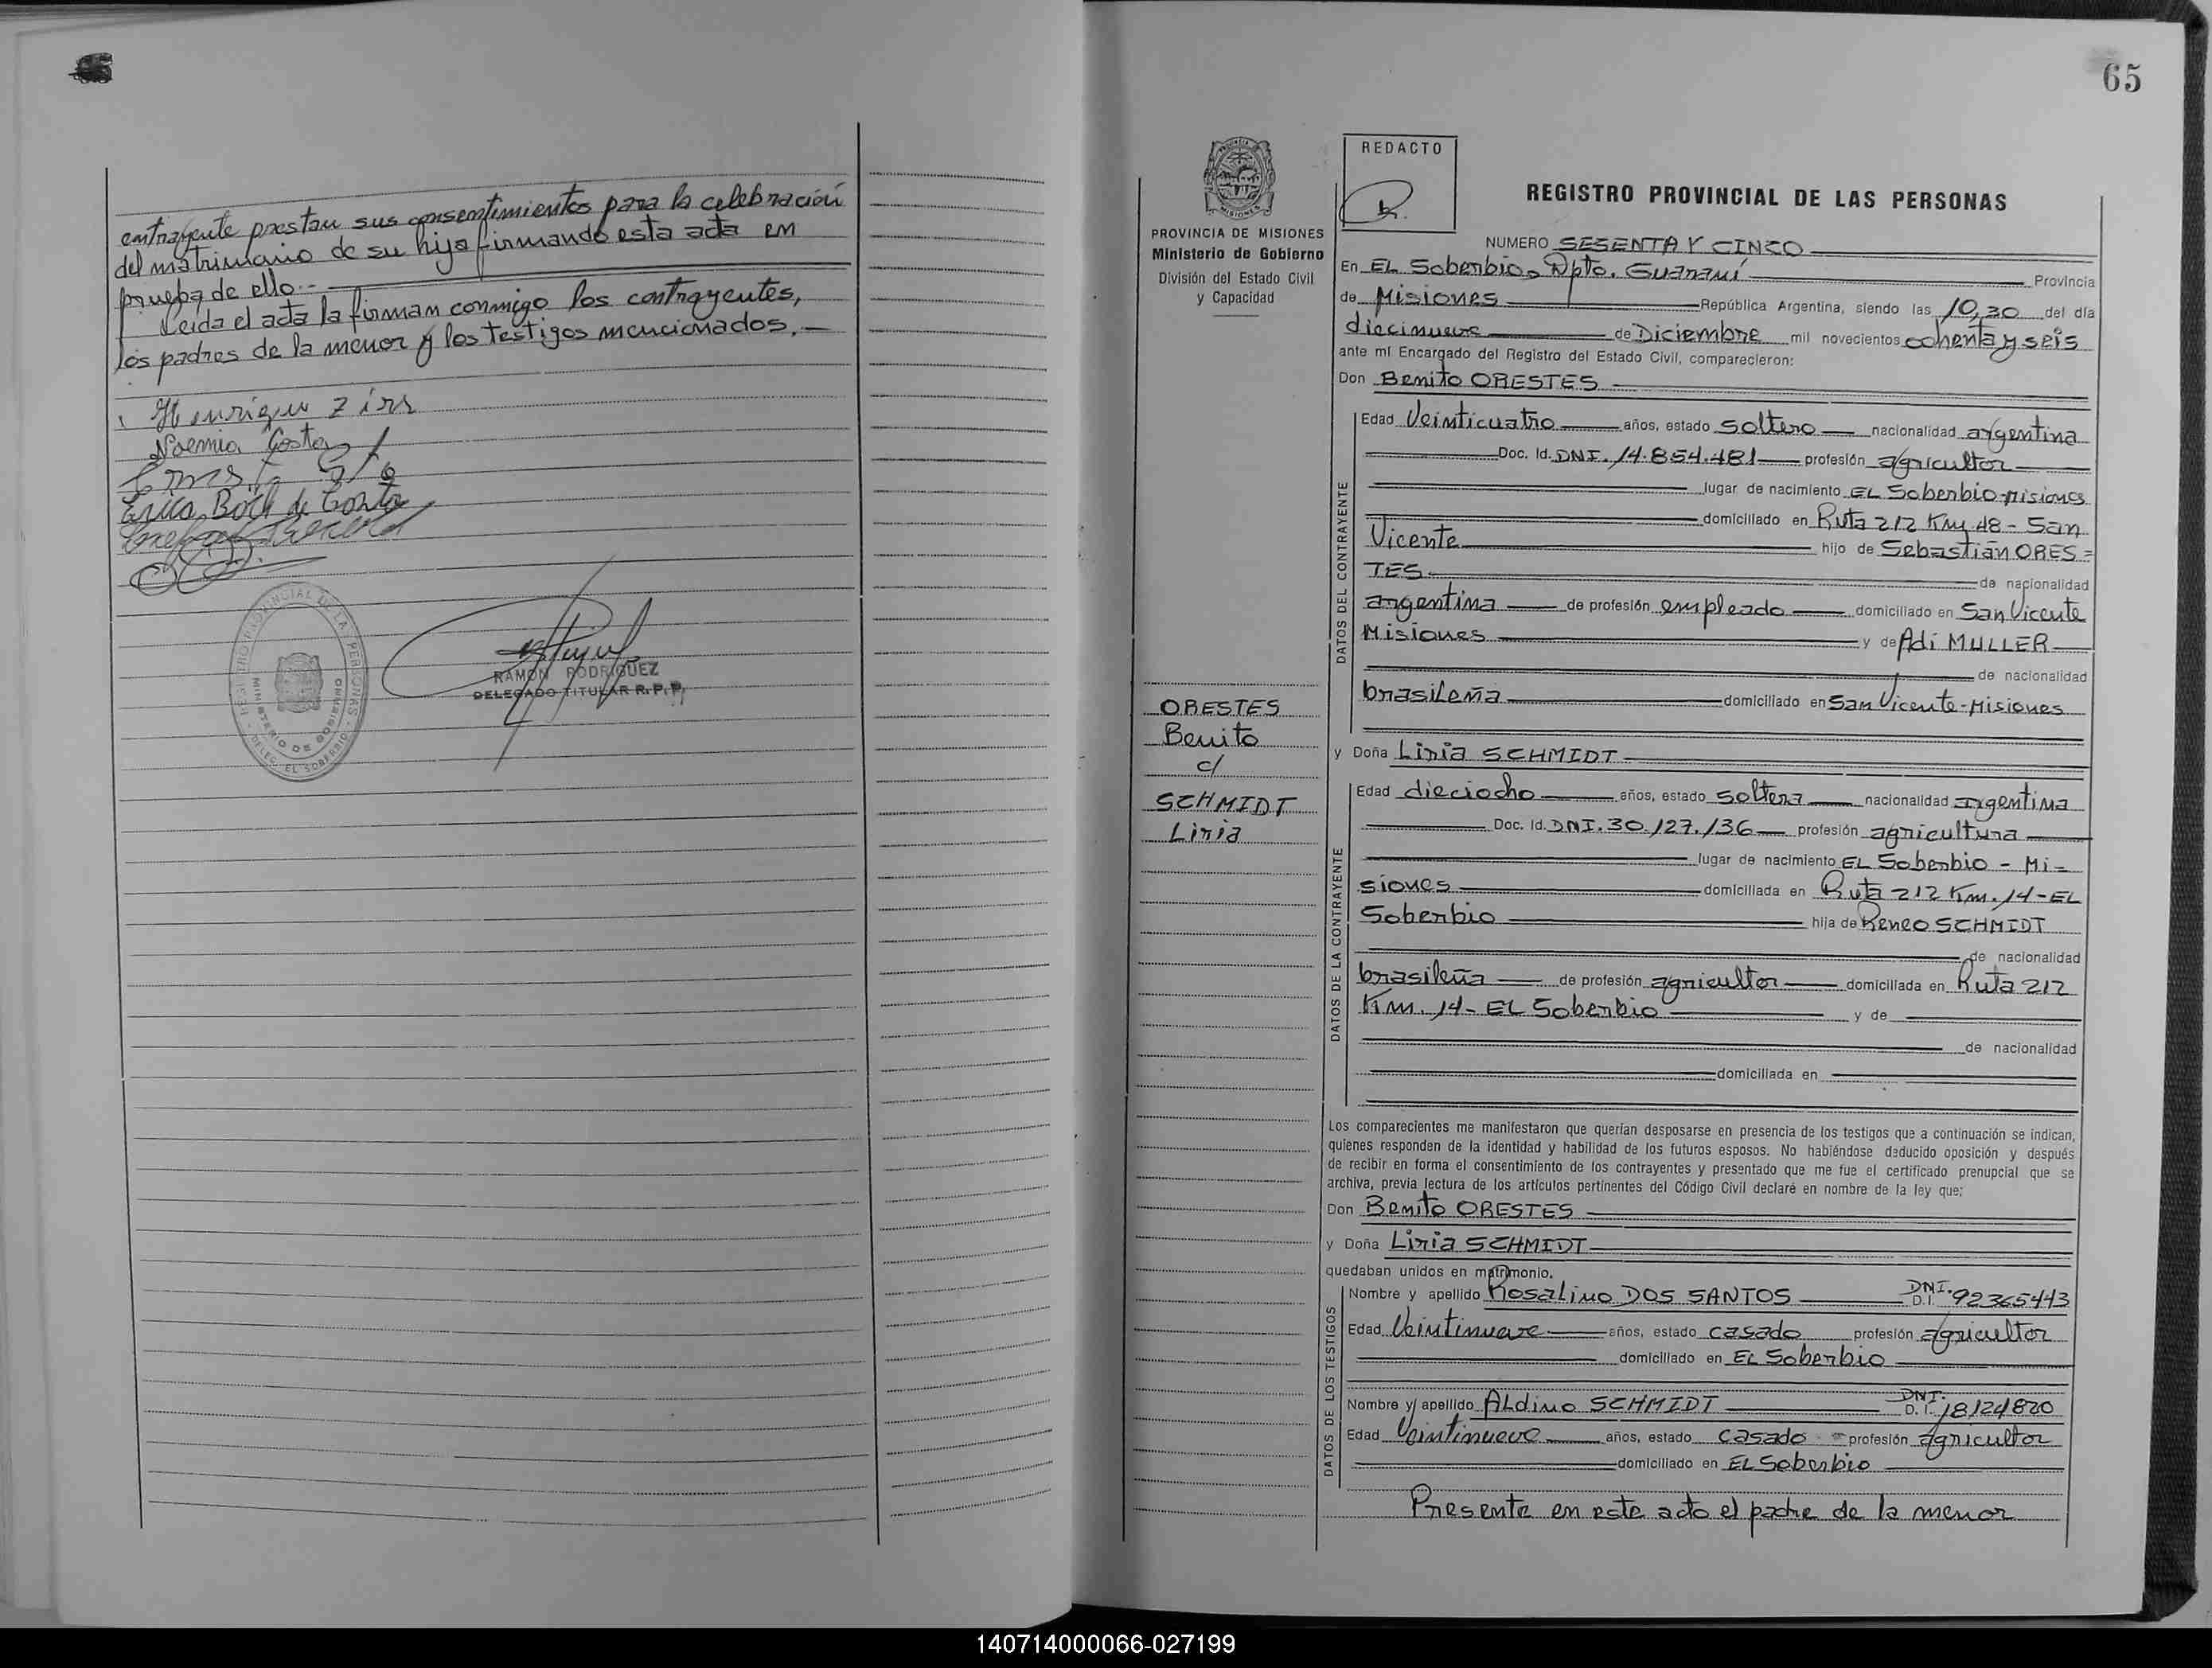 contrayente prestan sus consentimientos para la celebración
del matrimonio de su hija firmando esta acta en
prueba de ello.-
Leida el acta la firman conmigo los contrayentes,
los padres de la menor y los testigos mencionados.-
Noemia Costa
Erica Boch de Costa
REGISTRO PROVINCIAL DE LA PERSONAS
MINISTERIO DE GOBIERNO
DELEG. EL SOBERBIO
RAMON RODRIGUEZ
DELEGADO TITULAR R.P.P.
65
REDACTO
REGISTRO PROVINCIAL DE LAS PERSONAS
MISIONES
PROVINCIA DE MISIONES
Ministerio de Gobierno
División del Estado Civil
y Capacidad
NUMERO SESENTA Y CINCO
En EL Soberbio, Dpto. Guaraní Provincia
de Misiones República Argentina, siendo las 10,30 del día
diecinueve de Diciembre mil novecientos ochenta y seis
ante mí Encargado del Registro del Estado Civil, comparecieron:
Don Benito ORESTES
DATOS DEL CONTRAYENTE
Edad Veinticuatro años, estado soltero nacionalidad argentina
Doc. Id. DNI. 14.854.481 profesión agricultor
lugar de nacimiento EL Soberbio-Misiones
domiciliado en Ruta 212 Km. 48 - San
Vicente hijo de Sebastián ORES=
TES de nacionalidad
argentina de profesión empleado domiciliado en San Vicente
Misiones y de Adi MULLER
de nacionalidad
brasileña domiciliado en San Vicente-Misiones
ORESTES
Benito
c/
SCHMIDT
Liria
y Doña Liria SCHMIDT
DATOS DE LA CONTRAYENTE
Edad dieciocho años, estado soltera nacionalidad argentina
Doc. Id. DNI. 30.127.136 profesión agricultura
lugar de nacimiento EL Soberbio - Mi=
siones domiciliada en Ruta 212 Km. 14-EL
Soberbio hija de Reneo SCHMIDT
de nacionalidad
brasileña de profesión agricultor domiciliada en Ruta 212
Km. 14- EL Soberbio y de
de nacionalidad
domiciliada en
Los comparecientes me manifestaron que querían desposarse en presencia de los testigos que a continuación se indican,
quienes responden de la identidad y habilidad de los futuros esposos. No habiéndose deducido oposición y después
de recibir en forma el consentimiento de los contrayentes y presentado que me fue el certificado prenupcial que se
archiva, previa lectura de los artículos pertinentes del Código Civil declaré en nombre de la ley que:
Don Benito ORESTES
y Doña Liria SCHMIDT
quedaban unidos en matrimonio.
DATOS DE LOS TESTIGOS
Nombre y apellido Rosalino DOS SANTOS DNI. D.I. 92365443
Edad Veintinueve años, estado casado profesión agricultor
domiciliado en EL Soberbio
Nombre y apellido ALdino SCHMIDT DNI. D.I. 18124820
Edad Veintinueve años, estado casado profesión agricultor
domiciliado en EL Soberbio
Presente en este acto el padre de la menor
140714000066-027199